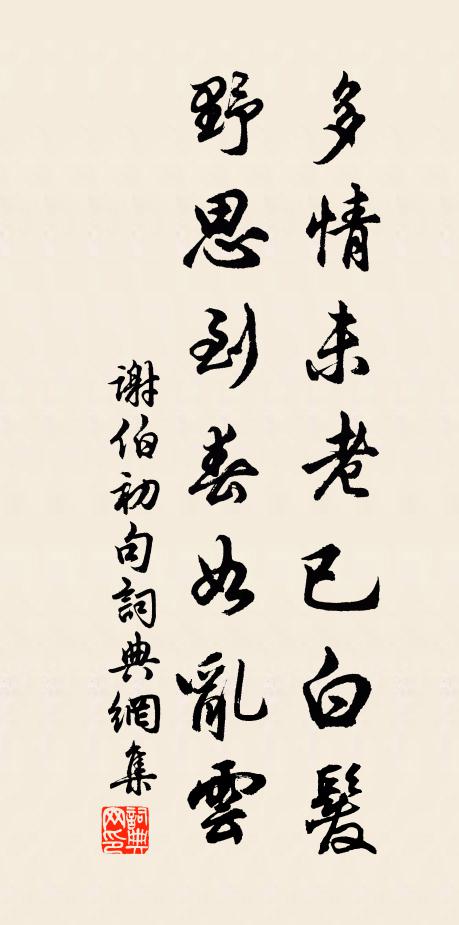 多情未老已白髮
野思到春如亂雲
謝伯初句詞典網集
詞典网印